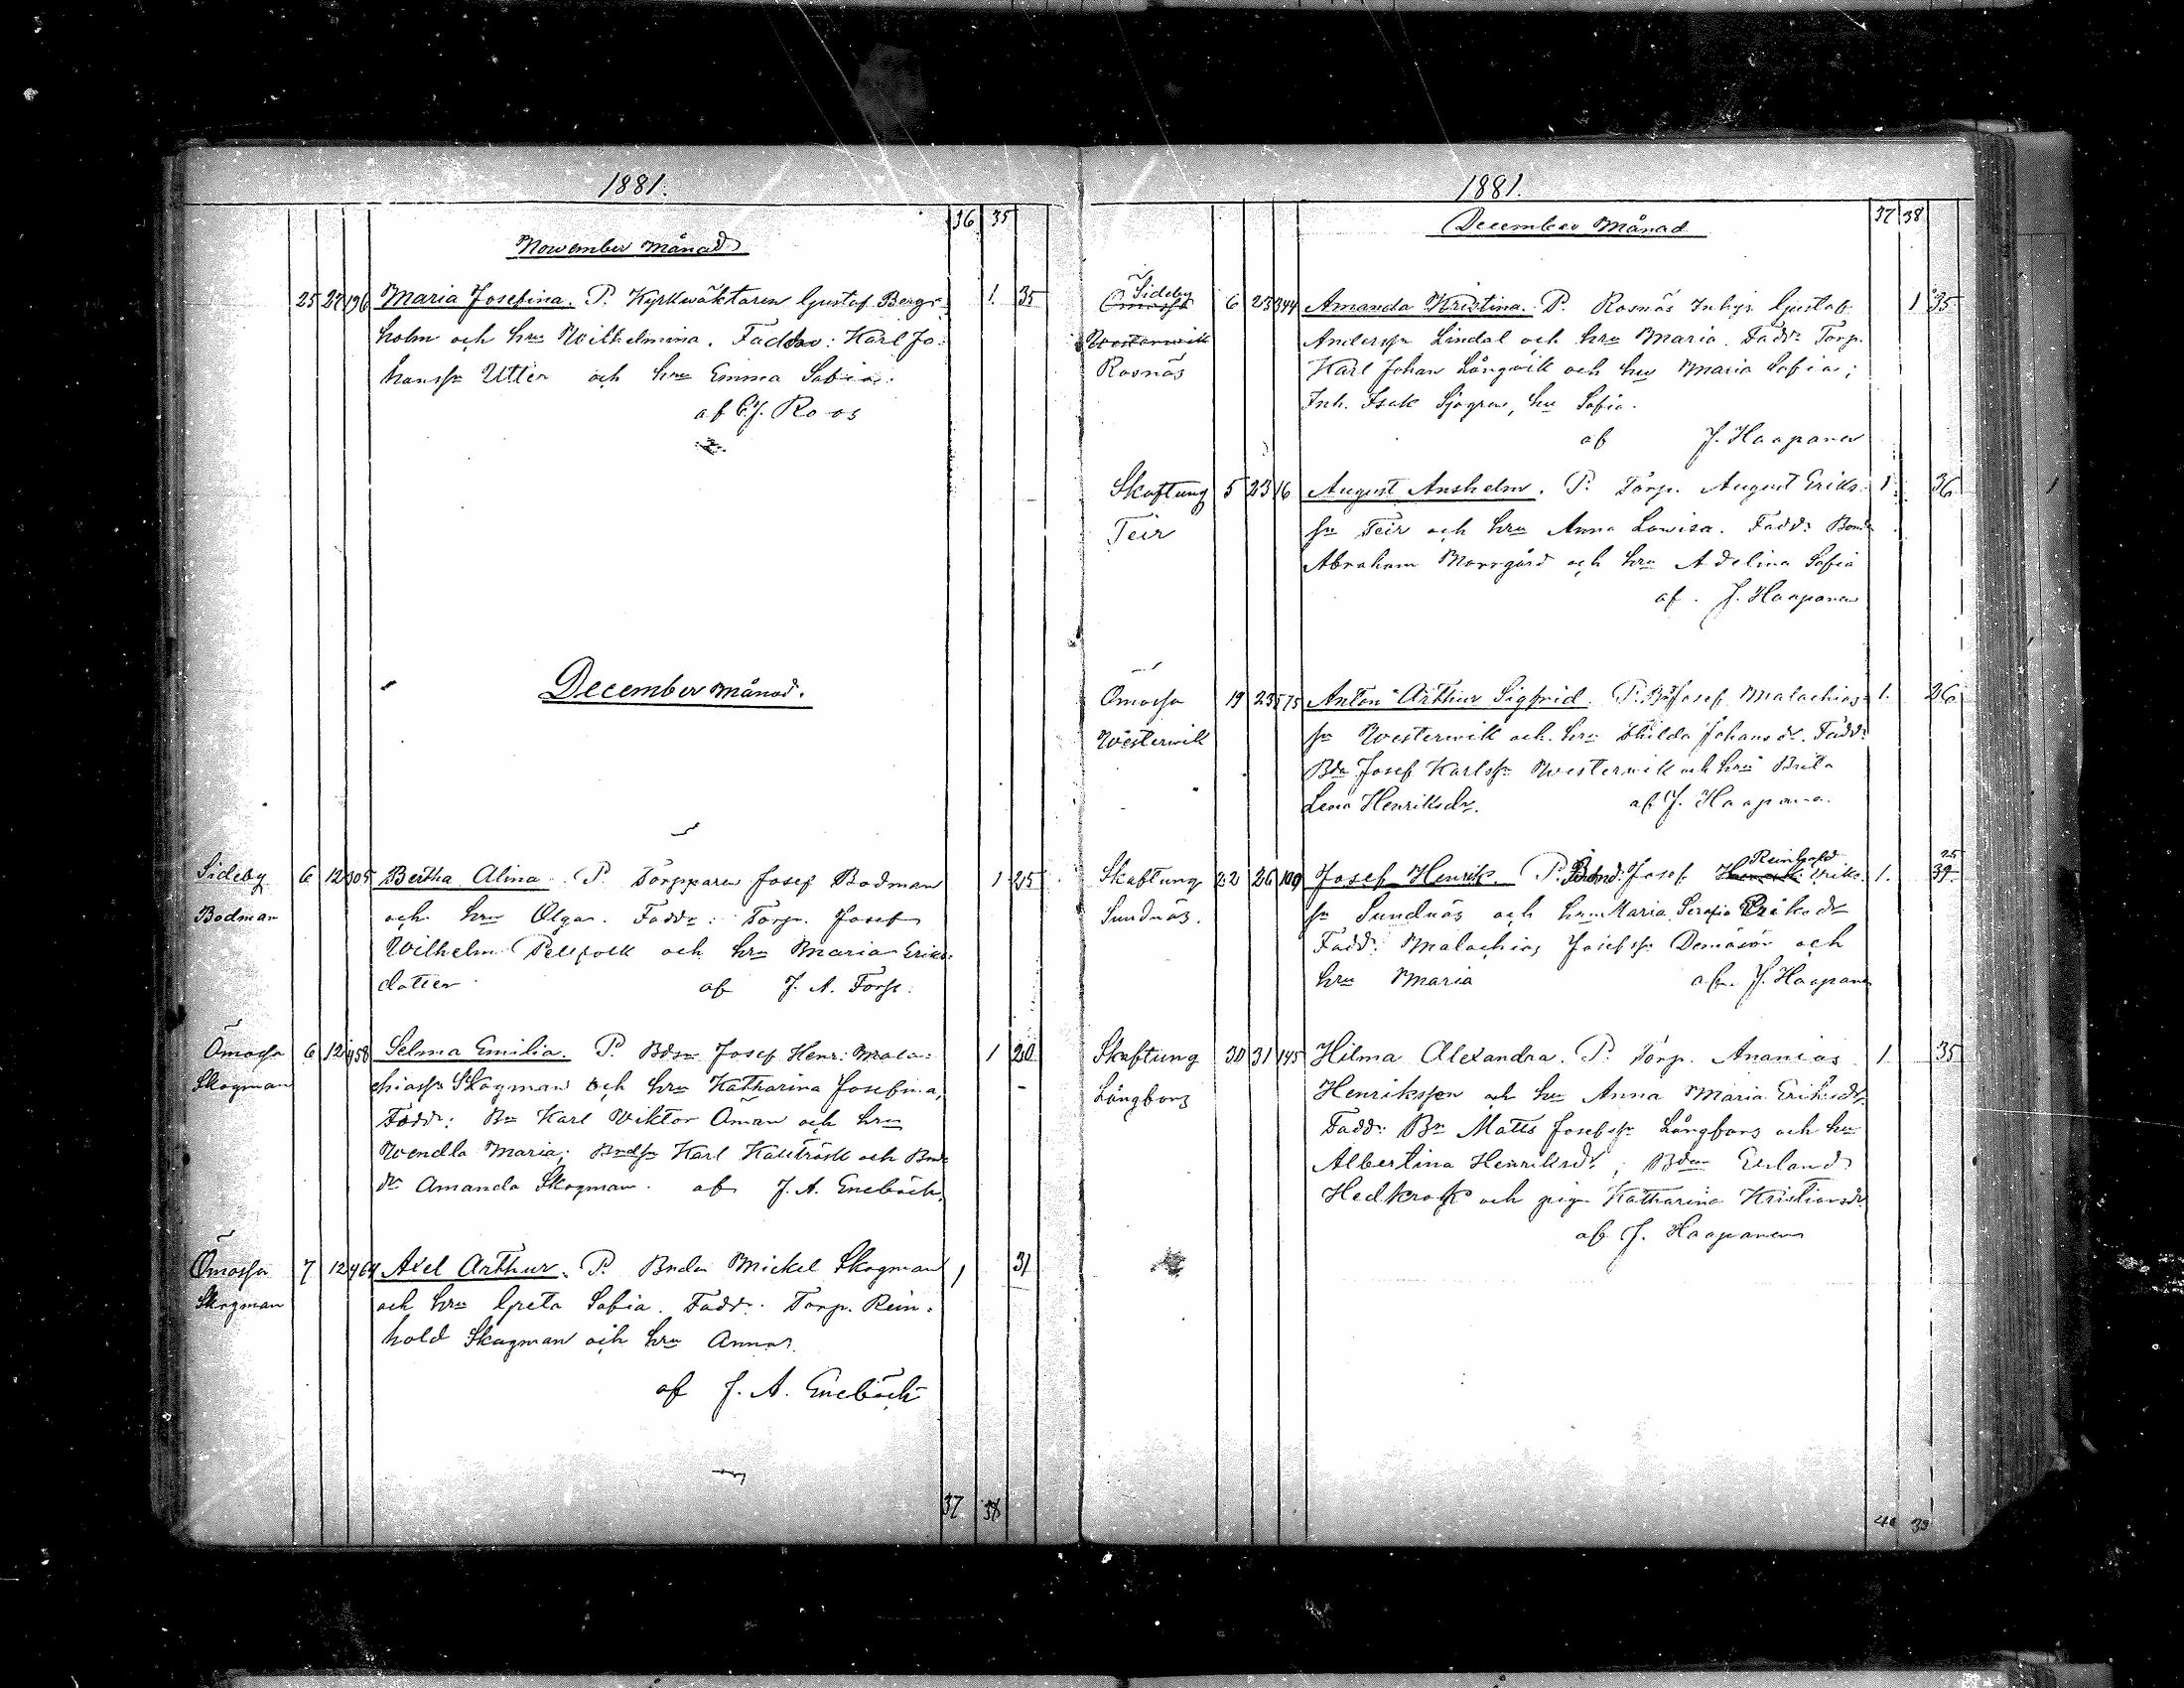 1881.
36 35
November månad
25 27 196 Maria Josefina. P. Kyrkwäktaren Gustaf Bergs- 1. 35
holm och hru Wilhelmina. Faddrar: Karl Jo-
hanssn Utter och hru Emma Sofia.
af C. J. Roos
December månad.
Sideby 6 12 305 Bertha Alina. P. Torpparen Josef Bodman 1 25
Bodman och hru Olga. Faddr: Torp. Josef
Wilhelm Pellfolk och hru Maria Eriks-
dotter af J. A. Forss.
Ömossa 6 12 458 Selma Emilia. P. Bdsn Josef Henr: Mala- 1 20
Skogman chiassn Skogman och hru Katharina Josefina,
Faddr: Bn Karl Viktor Öman och hru
Wendla Maria; Bndsn Karl Källträsk och Bnd
dr Amanda Skogman. af J. A. Enebäck.
Ömossa 7 12 464 Axel Arthur. P. Bnden Mickel Skogman 1 31
Skogman och hru Greta Sofia. Faddr. Torp. Rein-
hold Skogman och hru Anna.
af J. A. Enebäck
37 38
1881.
37 38
December Månad
Sideby
Ömossa 6 23 344 Amanda Kristina. P. Rosnäs Inhys Gustaf 1 35
Westerwik Anderssn Lindal och hru Maria. Faddr Torp.
Rosnäs Karl Johan Långwik och hru Maria Sofia;
Inh. Isak Sjögren, hru Sofia.
af J. Haapanen
Skaftung 5 23 16 August Anshelm. P. Torp. August Eriks- 1. 36
Teir sn Teir och hru Anna Lowisa. Faddr Bond
Abraham Norrgård och hru Adelina Sofia
af. J. Haapanen
Ömossa 19 23 575 Anton Arthur Sigfrid. P. Bn Josef Malachias- 1. 26
Westerwik sn Westerwik och hru Hilda Johansdr. Faddr
Bdn Josef Karlssn Westerwik och hru Brita
Lena Henriksdr. af J. Haapanen.
Reinhold 25
Skaftung 22 26 109 Josef Henrik. P. Bond. Josef Henrik Eriks- 1. 39
Sundnäs. sn Sundnäs och hru Maria Serafia Eriksdr
Faddr: Malachias Josefssn och
hru Maria af J. Haapanen
Skaftung 30 31 145 Hilma Alexandra. P. Torp. Ananias 1. 35
Långfors Henriksson och hru Anna Maria Eriksdr.
Faddr: Bn Matts Josefssn Långfors och hru
Albertina Henriksdr; Bdn Erland
Hedkrok och pign Katharina Kristiansdr
af J. Haapanen
40 39